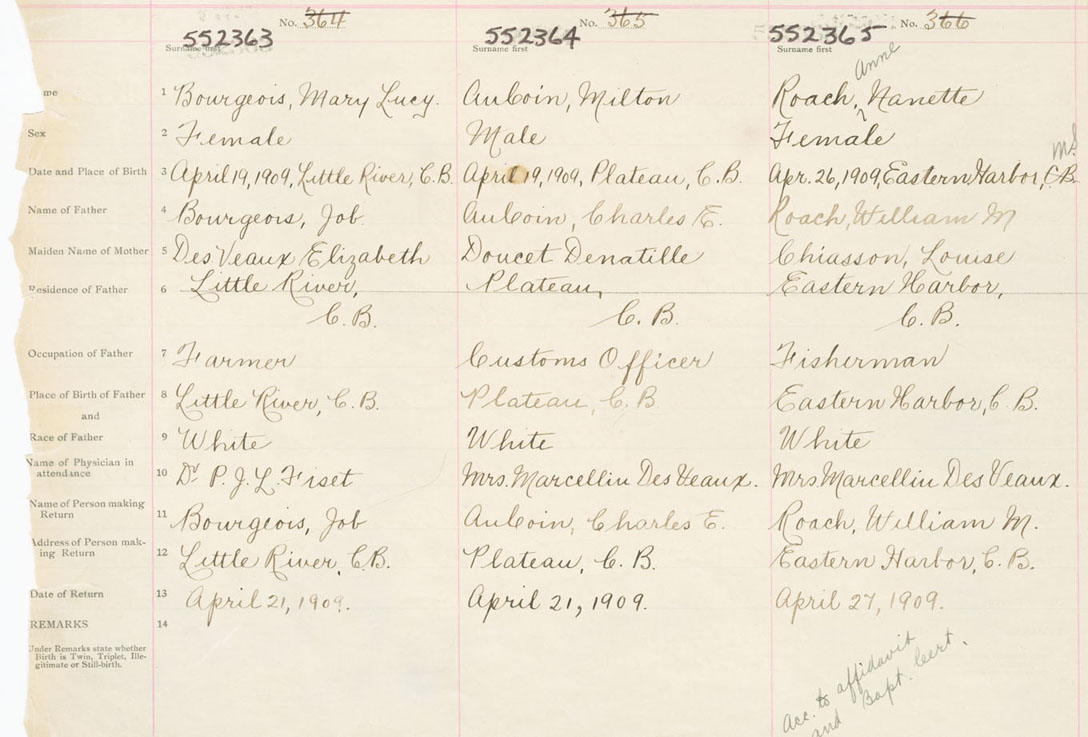 No. 364 No. 365 No. 366
552363 552364 552365
Surname first Surname first Surname first
Anne
me 1 Bourgeois, Mary Lucy. AuCoin, Milton Roach, Nanette
Sex 2 Female Male Female
Date and Place of Birth 3 April 19, 1909, Little River, C.B. April 19, 1909, Plateau, C.B. Apr. 26, 1909, Eastern Harbor, C.B.
Name of Father 4 Bourgeois, Job AuCoin, Charles E. Roach, William M
Maiden Name of Mother 5 DesVeaux Elizabeth Doucet Denatille Chiasson, Louise
Residence of Father 6 Little River, Plateau, Eastern Harbor,
C.B. C.B. C.B.
Occupation of Father 7 Farmer Customs Officer Fisherman
Place of Birth of Father 8 Little River, C.B. Plateau, C.B. Eastern Harbor, C.B.
and
Race of Father 9 White White White
Name of Physician in
attendance 10 Dr P.J.L. Fiset Mrs. Marcellin DesVeaux. Mrs. Marcellin DesVeaux.
Name of Person making
Return 11 Bourgeois, Job AuCoin, Charles E. Roach, William M.
Address of Person mak-
ing Return 12 Little River, C.B. Plateau, C.B. Eastern Harbor, C.B.
Date of Return 13 April 21, 1909. April 21, 1909. April 27, 1909.
REMARKS 14
Under Remarks state whether
Birth is Twin, Triplet, Ille-
gitimate or Still-birth.
Acc. to affidavit
and Bapt. Cert.